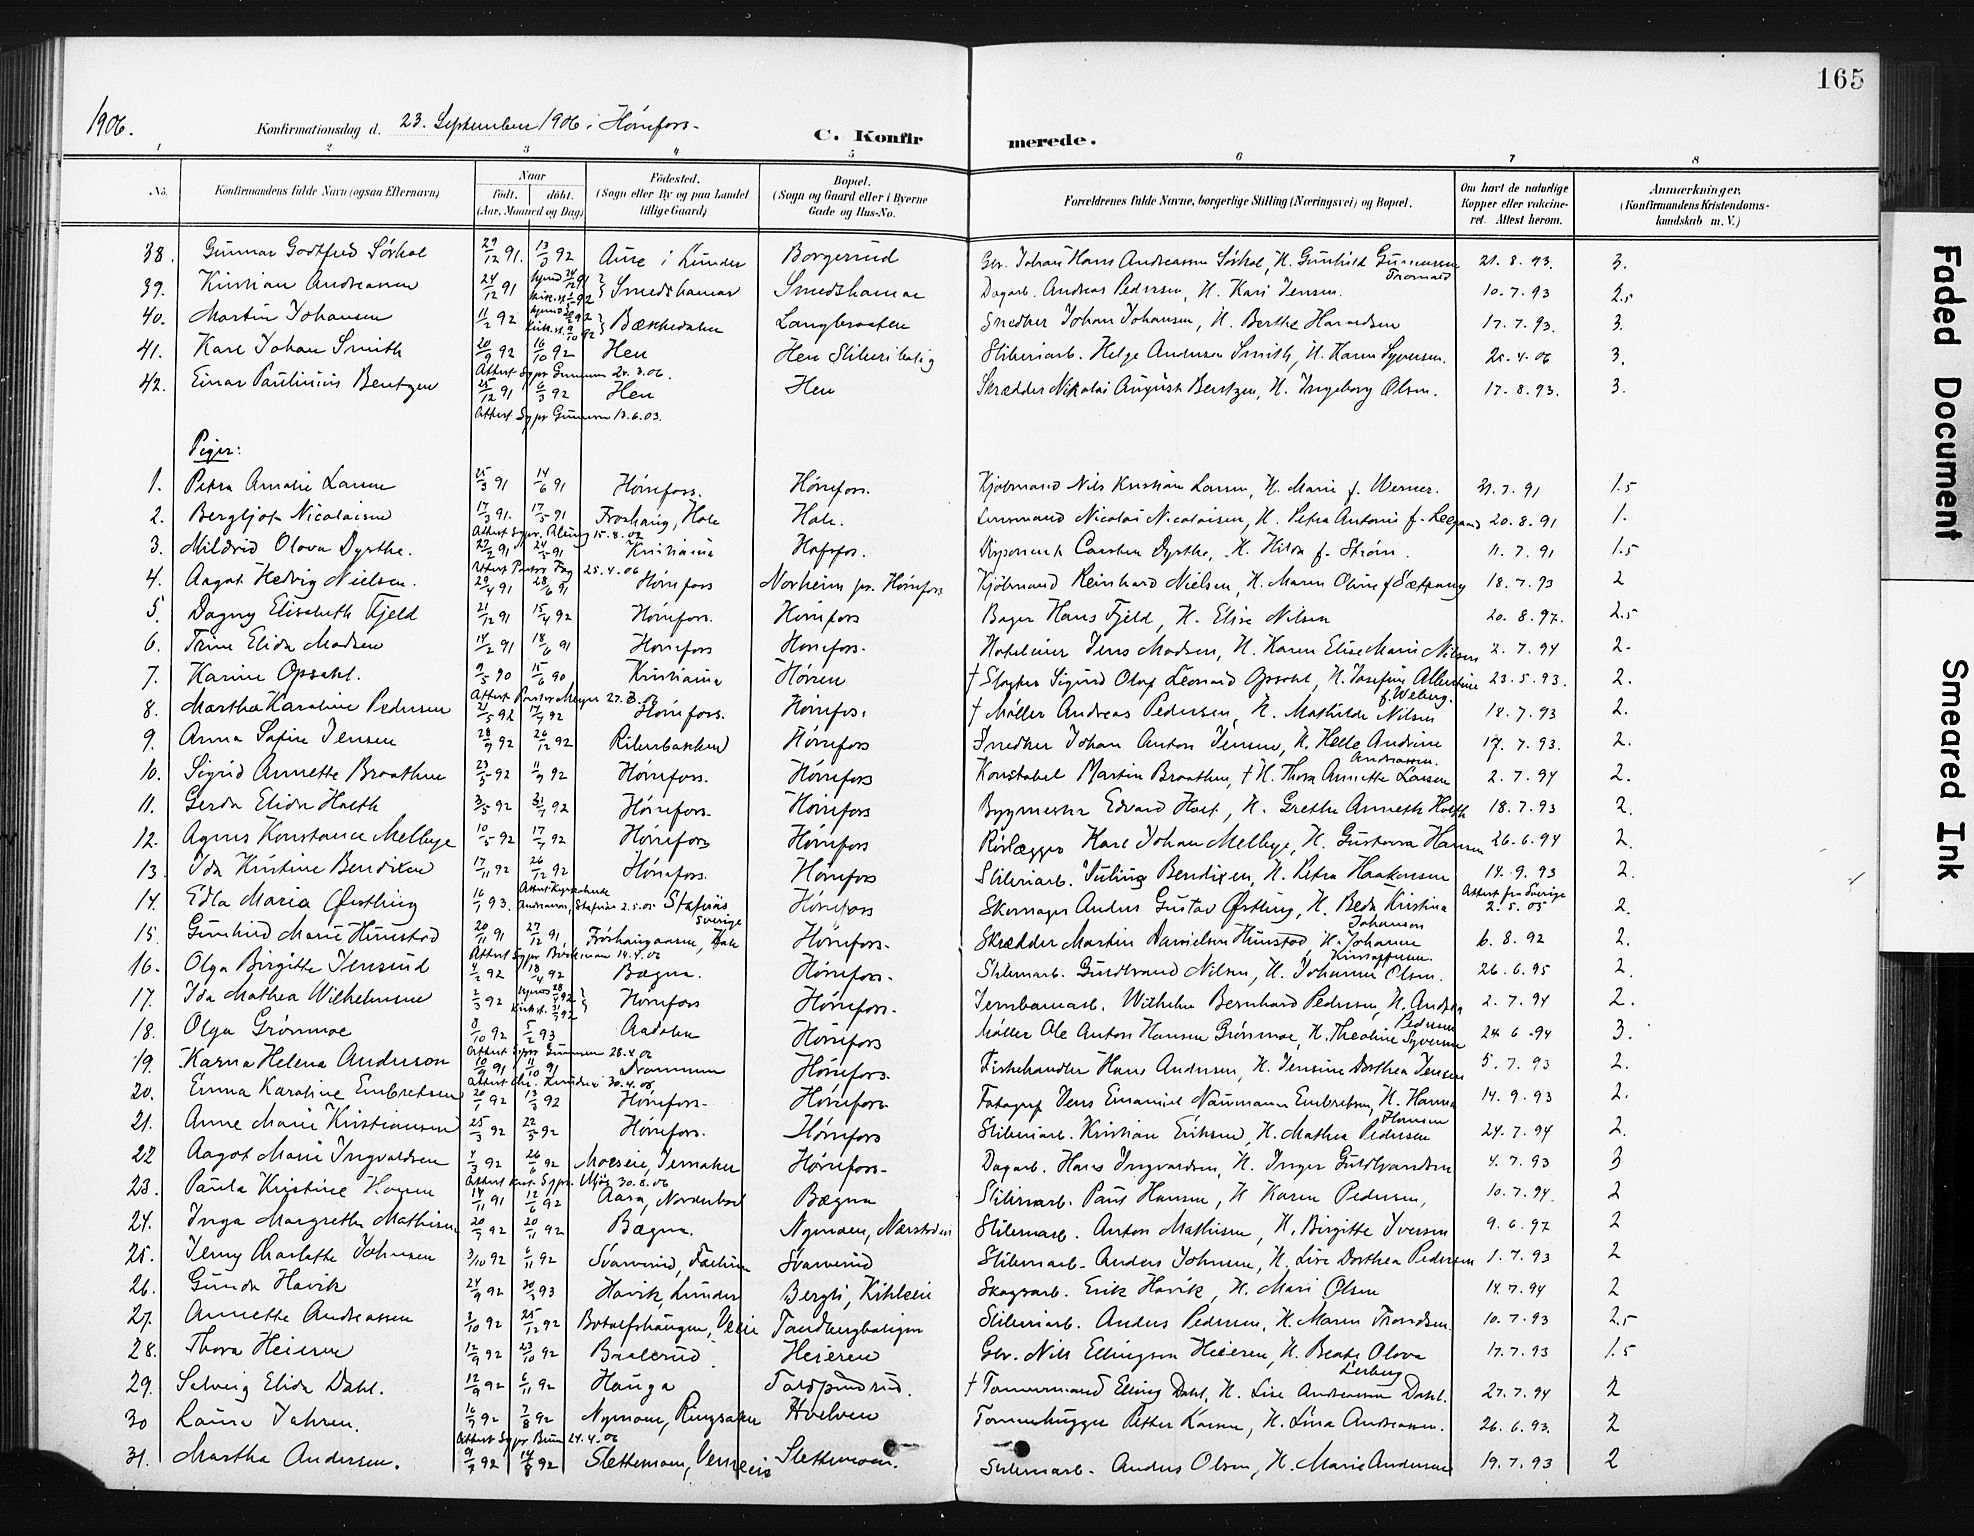 165
1906.
Konfirmationsdag d. 23. September 1906 i Hønefoss.
C. Konfirmerede.
1 2 3 4 5 6 7 8
No. Konfirmandens fulde Navn (ogsaa Efternavn) Naar født. døbt. (Aar, Maaned og Dag) Fødested. (Sogn eller By og paa Landet tillige Gaard) Bopæl. (Sogn og Gaard eller i Byerne Gade og Hus-No. Forældrenes fulde Navne, borgerlige Stilling (Næringsvei) og Bopæl. Om havt de naturlige Kopper eller vaccineret. Attest herom. Anmærkninger, (Konfirmandens Kristendomskundskab m. V.)
38. Gunnar Godtfred Sørhol 29/12 91. 13/3 92 Aure i Lunder Borgerud Gbr. Johan Hans Andreasen Sørhol, H. Gunhild Gunnersen 21.8.93. 3.
39. Kristian Andreasen 24/12 91 Smedshamar Smedshamar Dagarb. Andreas Pedersen, H. Kari Jensen. 10.7.93 2.5
40. Martin Johansen 11/2 92 Bækkedalen Langbraaten Snedker Johan Johansen, H. Berthe Haraldsen 17.7.93. 3.
41. Karl Johan Smith 20/9 92 16/10 92 Hen Hen Sliberibolig Sliberiarb. Helge Andersen Smith, H. Karen Syversen. 25.4.06 3.
42. Einar Paulinius Bentzen 25/12 91 6/3 92 Hen Hen Skrædder Nikolai August Bentzen, H. Ingeborg Olsen. 17.8.93. 3.
Piger:
1. Petra Amalie Larsen 25/3 91 14/6 91 Hønefoss. Hønefoss. Kjøbmand Nils Kristian Larsen, H. Marie f. Werner. 31.7.91 1.5
2. Bergljot Nicolaisen 17/3 91. 17/5 91 Froshaug, Hole Hole. Lensmand Nicolai Nicolaisen, H. Petra Antonie f. 20.8.91 1.
3. Mildrid Olova Dyrthe. 27/2 91 24/5 91 Kristiania Hofsfos. Disponent Carsten Dyrthe, H. Hilda f. Strøm. 11.7.91 1.5
4. Aagot Hedvig Nielsen. 29/4 91 28/6 91 Hønefoss Norheim pr. Hønefoss Kjøbmand Reinhard Nielsen, H. Maren Oline f. Sætrang 18.7.93 2
5. Dagny Elisabeth Fjeld 21/12 91 15/4 92 Hønefoss. Hønefoss Bager Hans Fjeld, H. Elise Nilsen 20.8.97. 2.5
6. Trine Elida Madsen 14/2 91 18/6 91 Hønefoss Hønefoss. Hoteleier Jens Madsen, H. Karen Elise Marie Nilsen 2.7.94 2.
7. Karine Opsahl. 9/5 90 15/6 90 Kristiania Hønen † Slagter Sigurd Olaf Leonard Opsahl, H. Josefine Albertine f. Weberg. 23.5.93. 2.
8. Martha Karoline Pedersen 21/5 92 17/7 92 Hønefoss. Hønefos. † Møller Andreas Pedersen, H. Mathilde Nilsen 18.7.93 2.
9. Anna Sofie Jensen 28/9 92 26/12 92 Rilenbakken Hønefoss Snedker Johan Anton Jensen, H. Helle Andrine Andreasen. 17.7.93. 2.
10. Sigrid Annette Braathen 23/5 92 11/9 92 Hønefoss. Hønefoss Konstabel Martin Braathen, † H. Thora Annette Larsen 2.7.94 2.
11. Gerda Elida Holth 3/5 92 31/7 92 Hønefoss. Hønefoss Bygmester Edvard Holt, H. Grethe Anneth Holth 18.7.93 2.
12. Agnes Konstance Melbye 10/5 92 17/7 92 Hønefoss Hønefoss Rørlægger Karl Johan Melbye, H. Gustava Hansen 26.6.94 2.
13. Ida Kristine Bendixen 17/11 92 26/12 92 Hønefoss. Hønefoss Sliberiarb. Julius Bendixen, H. Petra Haakensen 14.9.93 2.
14. Edla Maria Østling 16/1 93. Stafnäs Sverige Hønefoss Skomager Anders Gustav Østling, H. Beda Kristina Johanson Attest fra Sverige 2.5.05 2.
15. Gunhild Marie Hunstad 20/11 91 27/12 91 Frøshaugaasen, Hole Hønefoss. Skrædder Martin Danielsen Hunstad, H. Johanne 6.8.92 2.
16. Olga Birgitte Jensrud 4/2 92 18/4 92 Bægna. Hønefoss. Sliberiarb. Guldbrand Nilsen, H. Johanne Olsen. 26.6.95 2.
17. Ida Mathea Wilhelmsen 2/3 92 Hønefoss Hønefoss. Jernbanearb. Wilhelm Bernhard Pedersen, H. Andrea Pedersen 2.7.94 2.
18. Olga Grønmoe 8/10 92 5/2 93 Aadalen Hønefoss Møller Ole Anton Hansen Grønmoe, H. Theoline Syversen 24.6.94 3.
19. Karna Helena Anderson 10/9 91 11/10 91 Drammen Hønefoss. Fiskehandler Hans Andersen, H. Jensine Dorthea Jensen 5.7.93 2.
20. Emma Karoline Embretsen 20/1 92 13/3 92 Hønefoss. Hønefoss Fotograf Jens Emanuel Naumann Embretsen, H. Hanna Hansen 14.9.93 2.
21. Anne Marie Kristiansen 25/3 92 22/5 92 Hønefoss. Hønefoss Sliberiarb. Kristian Eriksen, H. Mathea Pedersen 24.7.94 2.
22 Aagot Marie Ingvaldsen 4/3 92 26/6 92 Moeseie, Jevnaker Hønefoss. Dagarb. Hans Ingvardsen, H. Inger Guldbrandsen 4.7.93 3
23. Paula Kristine Hansen 14/11 91 12/6 92 Aasa, Norderhov Bægna Sliberiarb. Paul Hansen, H Karen Pedersen, 10.7.94. 2
24. Inga Margrethe Mathisen 20/9 92 20/11 92 Bægna. Nymoen, Nærstaden Sliberiarb. Anton Mathisen, H. Birgitte Iversen 9.6.97 2
25. Jenny Charlotte Johnsen 3/10 92 6/11 92 Svarverud Sliberiarb. Anders Johnsen, H. Lise Dorthea Pedersen 1.7.93 2
26. Gunda Høvik 24/9 92 30/3 93 Høvik, Lunder Bergli Skogsarb. Erik Høvik, H. Mari Olsen 14.7.94 2
27. Annette Andreassen 3/10 92 25/12 92 Botolfshaugen, Veme Tandbergboligen Sliberiarb. Anders Pedersen, H. Maren Trondsen. 10.7.93 2.5
28. Thora Heieren 12/9 92 23/10 92 Baalerud Heieren Gbr. Nils Ellingsen Heieren, H. Beate Olova Lerberg 17.7.93 1.5
29. Solveig Elida Dahl. 12/9 92 6/11 92 Hauga † Tømmermand Elling Dahl, H. Lise Andreasen Dahl. 27.7.94 2
30 Laura Jahren. 16/7 92 7/8 92 Nymoen, Ringsaker Hvelven Tømmerhugger Petter Larsen, H. Lina Andreasen. 26.6.93. 2
31. Martha Andersen. 9/7 92 14/8 92 Slettemoen, Slettemoen. Sliberiarb. Anders Olsen, H. Marie Andersen 19.7.93 2
Faded Document
Smeared Ink